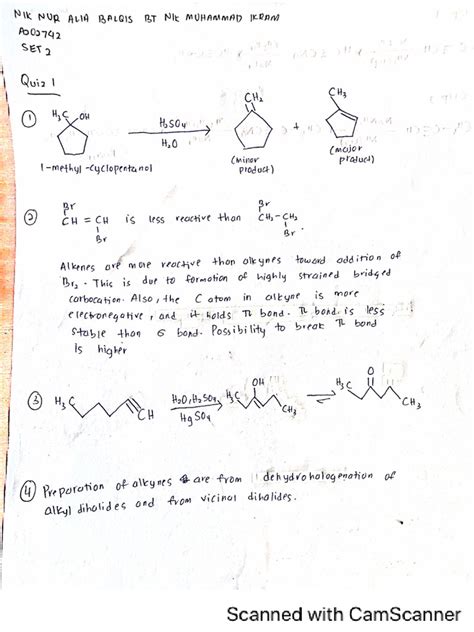 NIK NUR ALIA BALQIS BT NIK MUHAMMAD IKRAM
A002742
SET 2
Quiz 1
①
H₃C OH
H₂SO₄
H₂O
CH₂
+
CH₃
1-methyl-cyclopentanol
(minor product)
(major product)
②
Br Br
CH = CH is less reactive than CH₂ - CH₂
Br Br
Alkenes are more reactive than alkynes toward addition of
Br₂. This is due to formation of highly strained bridged
carbocation. Also, the C atom in alkyne is more
electronegative, and it holds π bond. π bond is less
stable than σ bond. Possibility to break π bond
is higher
③
H₃C CH
H₂O, H₂SO₄
HgSO₄
H₃C OH CH₃
⇌
H₃C O CH₃
④ Preparation of alkynes are from dehydrohalogenation of
alkyl dihalides and from vicinal dihalides.
Scanned with CamScanner